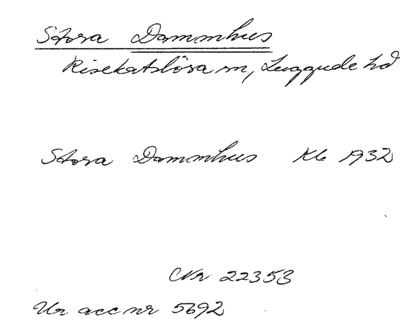 Stora Dammhus
Risekatslösa sn, Luggude hd
Stora Dammhus Kb 1932
Nr 22353
Ur acc nr 5692